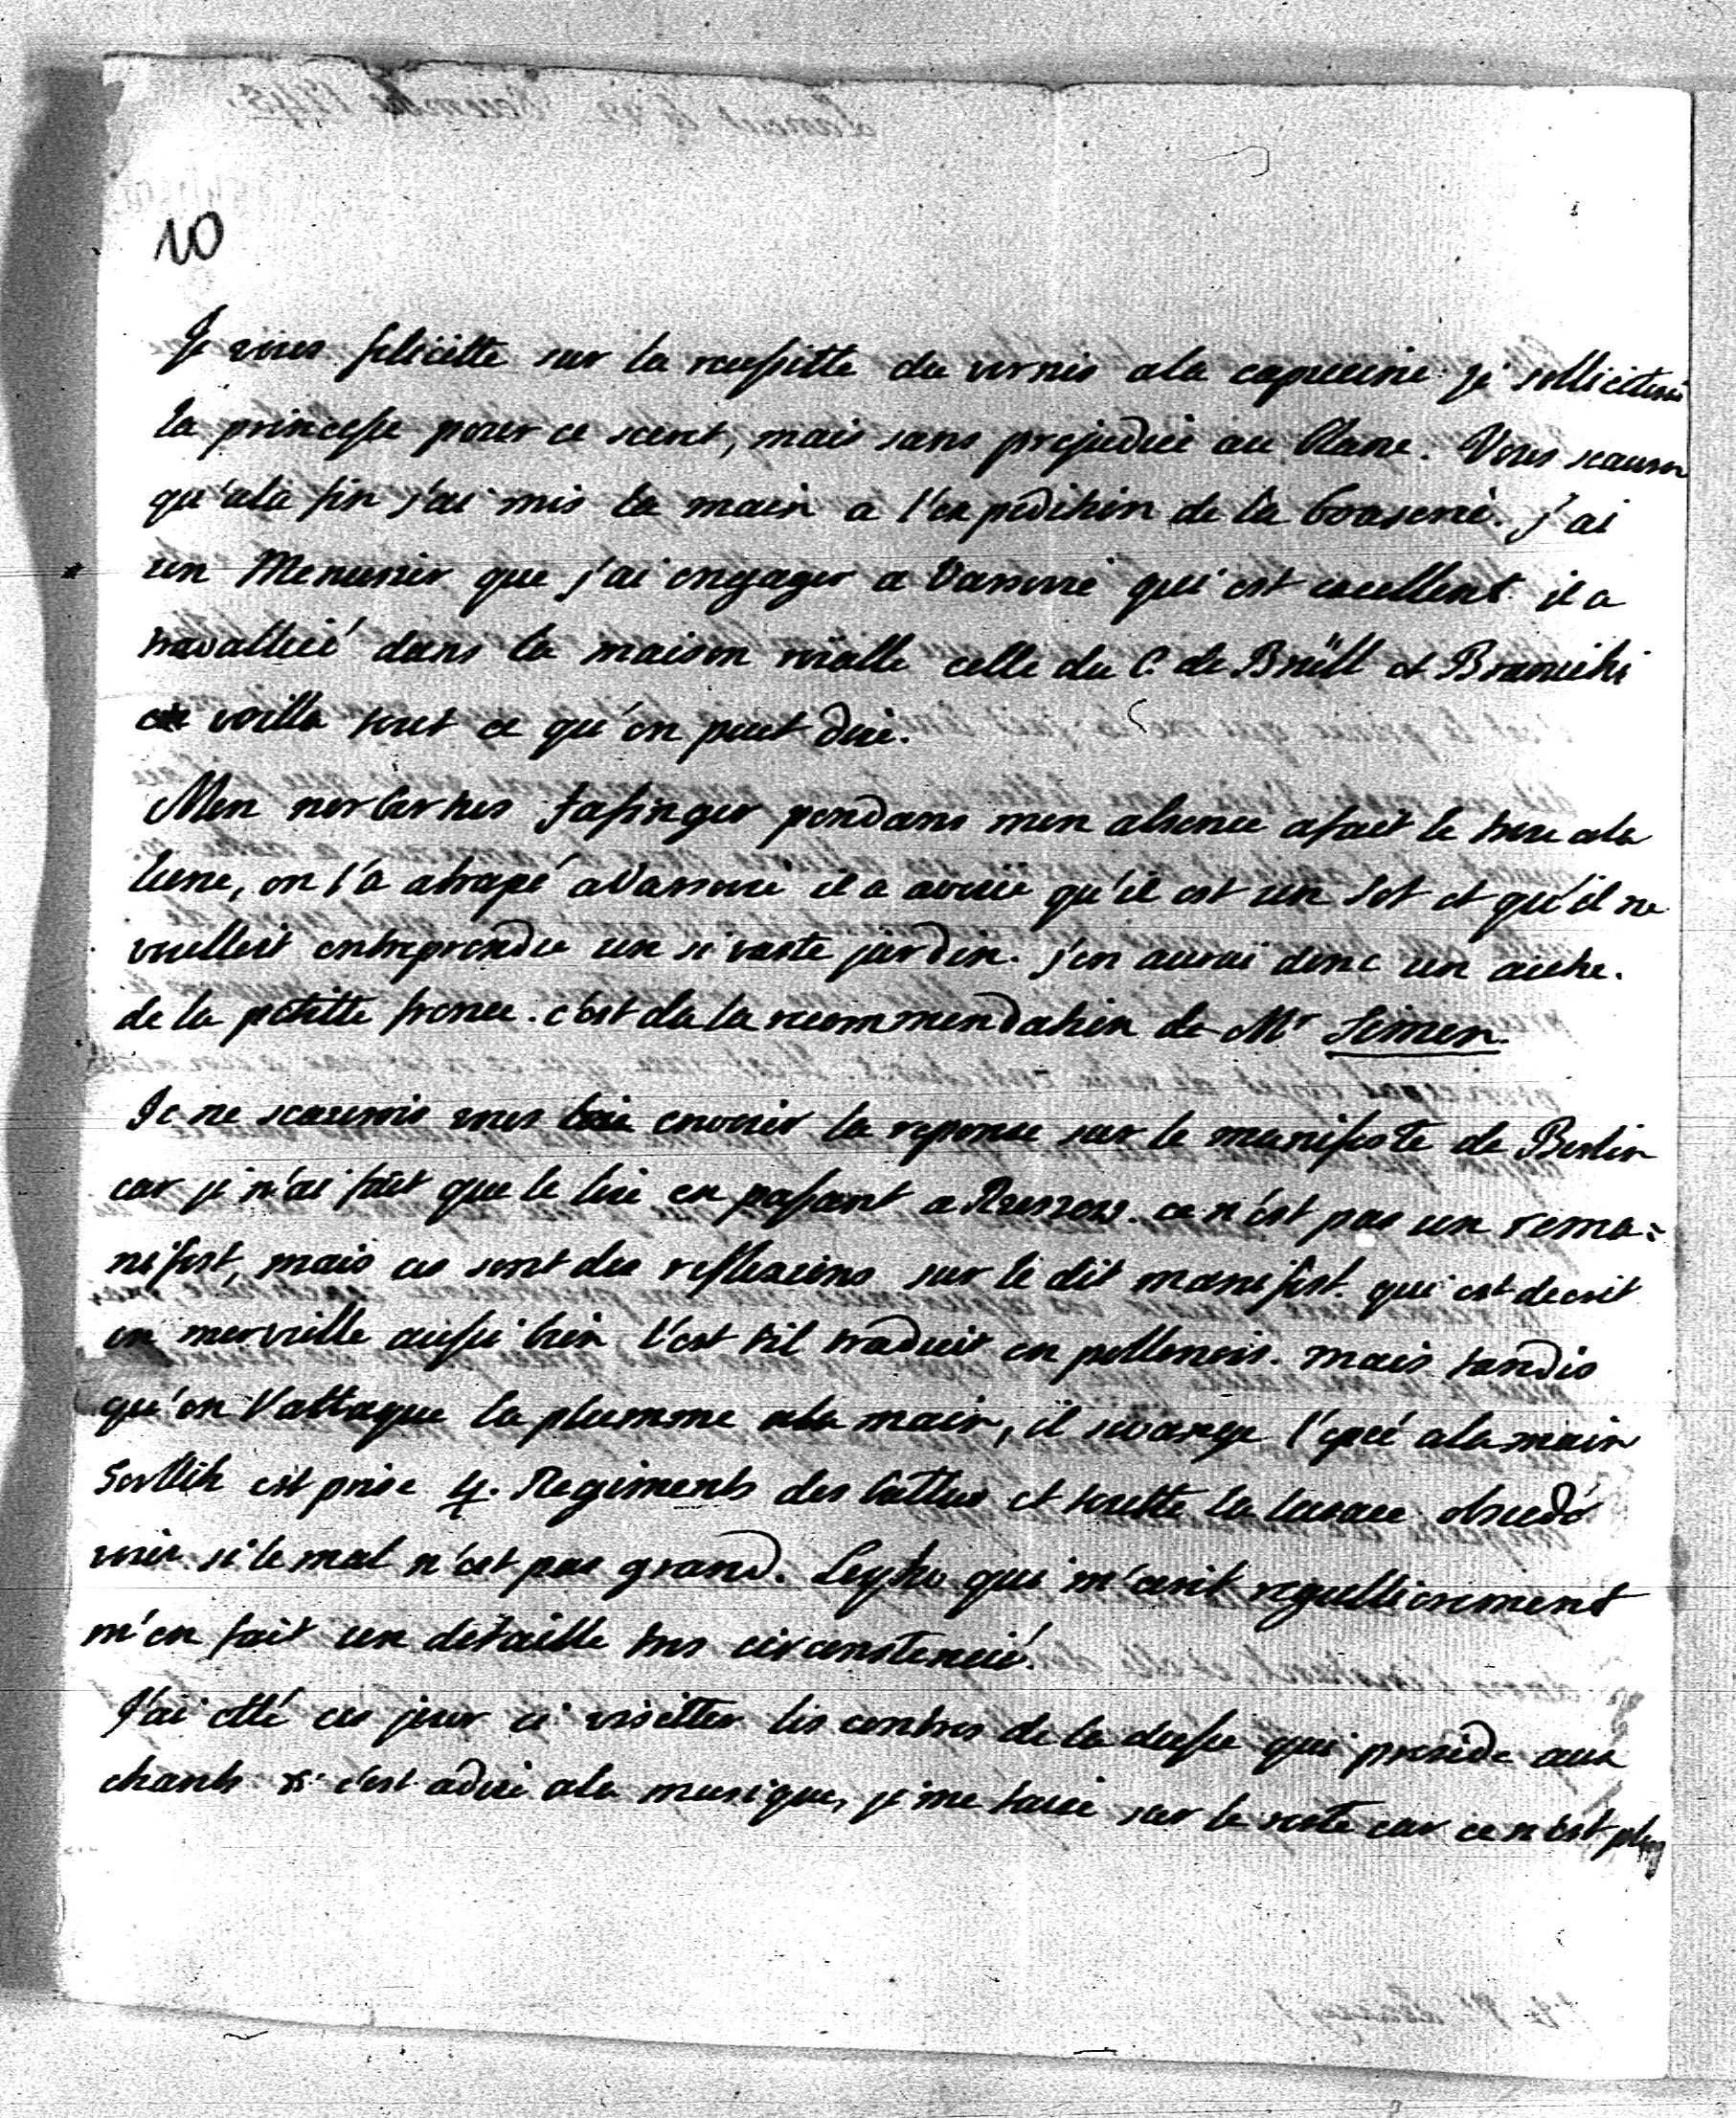 10
Je vous felicitte sur la reussitte du vernis ala capucine je solliciterai
la princesse pour ce secret, mais sans prejudice au blanc. Vous scaurez
qu'ala fin j'ai mis la main a l'expedition de la j'ai
un Menusier que j'ai engager a Varsovie qui est excellent il a
travalliié dans la maison roïalle celle du C. de Brüll et Branicki
voilla tout ce qu'on peut dire.
Mon pendans mon absence a fait le trou ala
lune, on l'a atrapé a Varsovie il a avoué qu'il est un sot et qu'il ne
voulloit entreprendre un si vaste jardin. j'en aurai donc un autre.
de la petitte france. c'est de la recommendation de Mr Simon.
Je ne scaurois vous envoier la reponse sur le manifeste de Berlin
car je n'ai fait que le lire en passant a Rzeszow. ce n'est pas un rema=
nifest, mais ce sont des reflexions sur le dit manifest. qui est decrit
en merveille aussi bien l'est til traduit en pollonois. mais tandis
qu'on l'attaque la plumme ala main, il se vange l'epeé ala main
est prise 4. Regiments des battus et toutte la lusace obsedé
voir si le mal n'est pas grand. qui m'ecrit regullierement
m'en fait un detaille tres circonstencié.
J'ai etté ces jour ci visitter les centres de la deesse qui preside aux
chants c'est adire ala musique, je me taise sur le reste car ce n'est plus